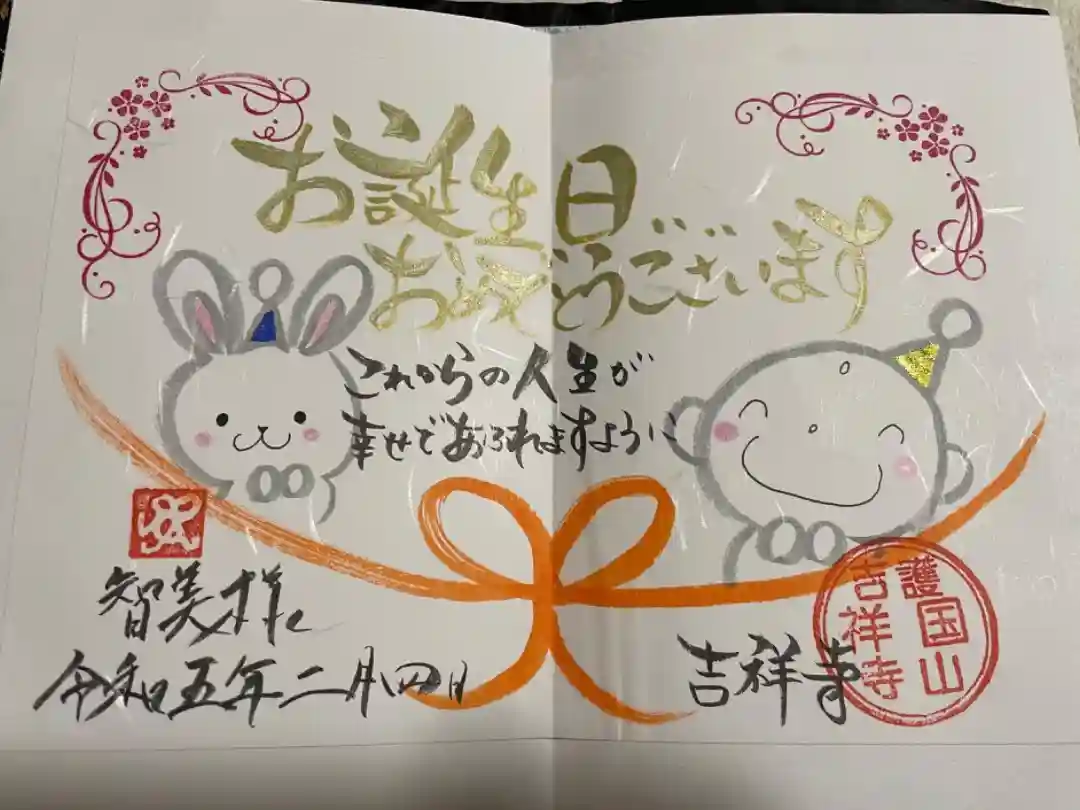 お誕生日
おめでとうございます
これからの人生が
幸せであられますように
智美様
令和五年二月四日
吉祥寺
護国山
吉祥寺